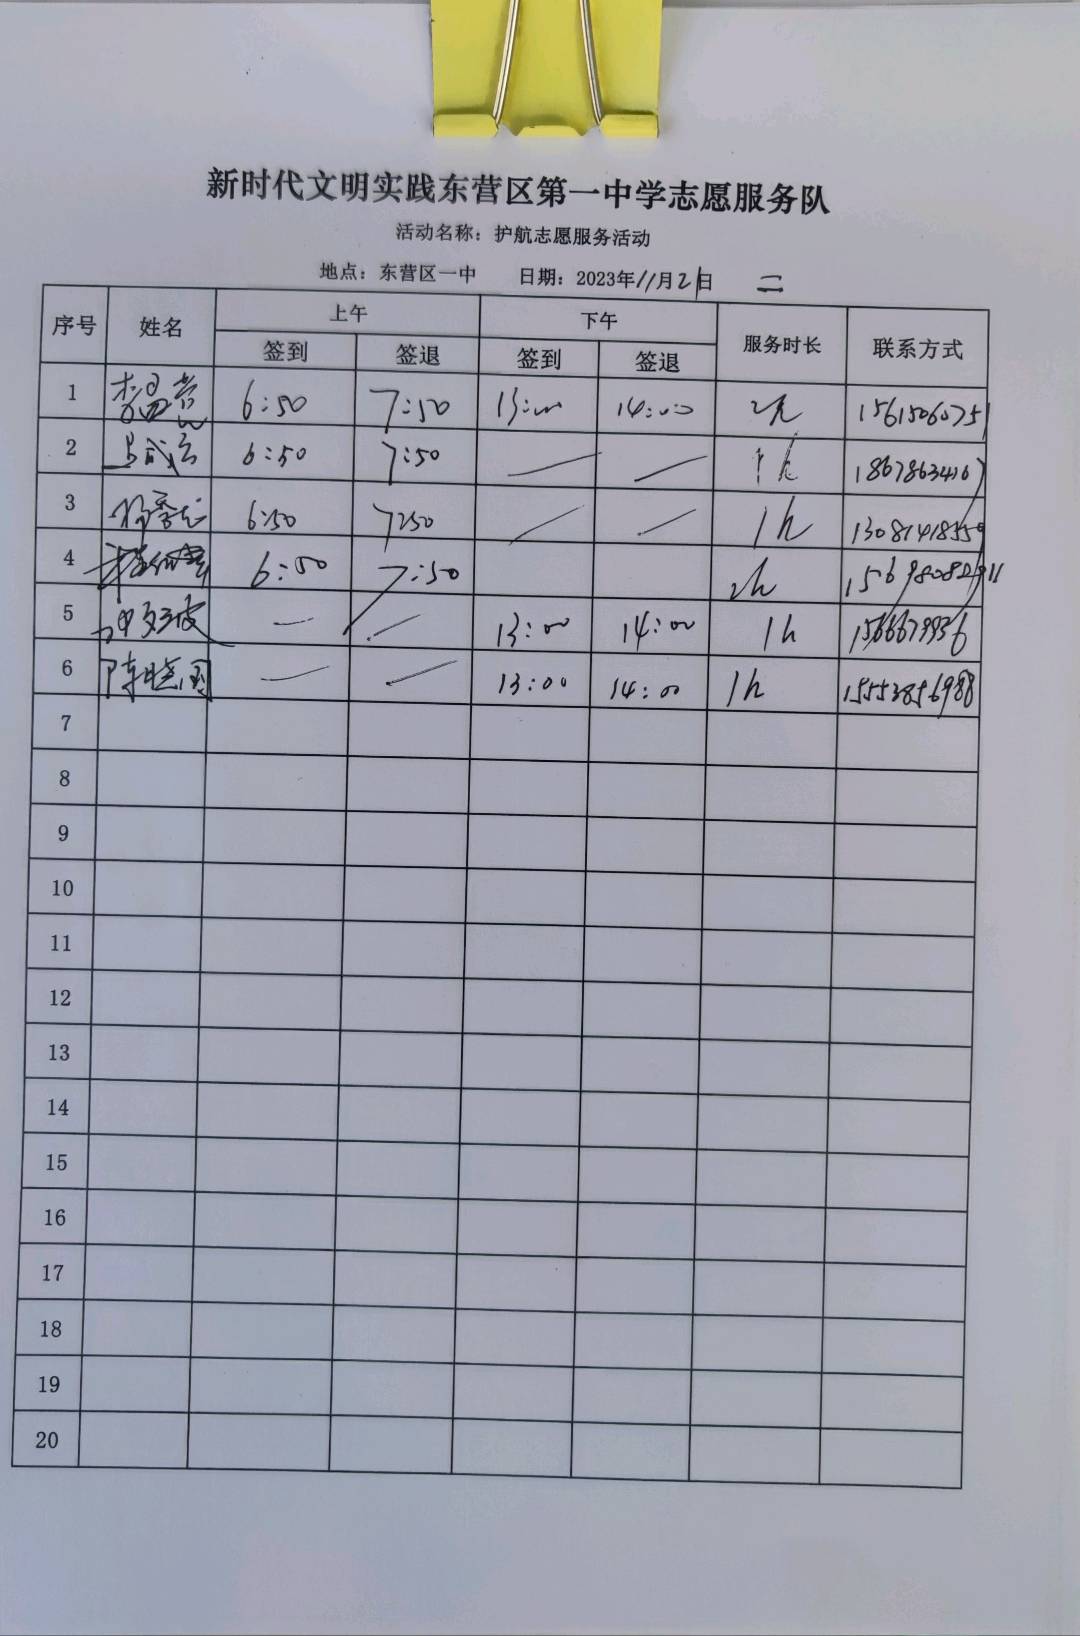 新时代文明实践东营区第一中学志愿服务队
活动名称：护航志愿服务活动
地点：东营区一中 日期：2023年11月21日 二
序号 姓名 上午 下午 服务时长 联系方式
签到 签退 签到 签退
1 6:50 7:50 13:00 14:00 2h 15615060751
2 6:50 7:50 — — 1h
3 6:50 7:50 — — 1h 13081418559
4 6:50 7:50 2h
5 — — 13:00 14:00 1h
6 陈晓国 — — 13:00 14:00 1h 15553856988
7
8
9
10
11
12
13
14
15
16
17
18
19
20